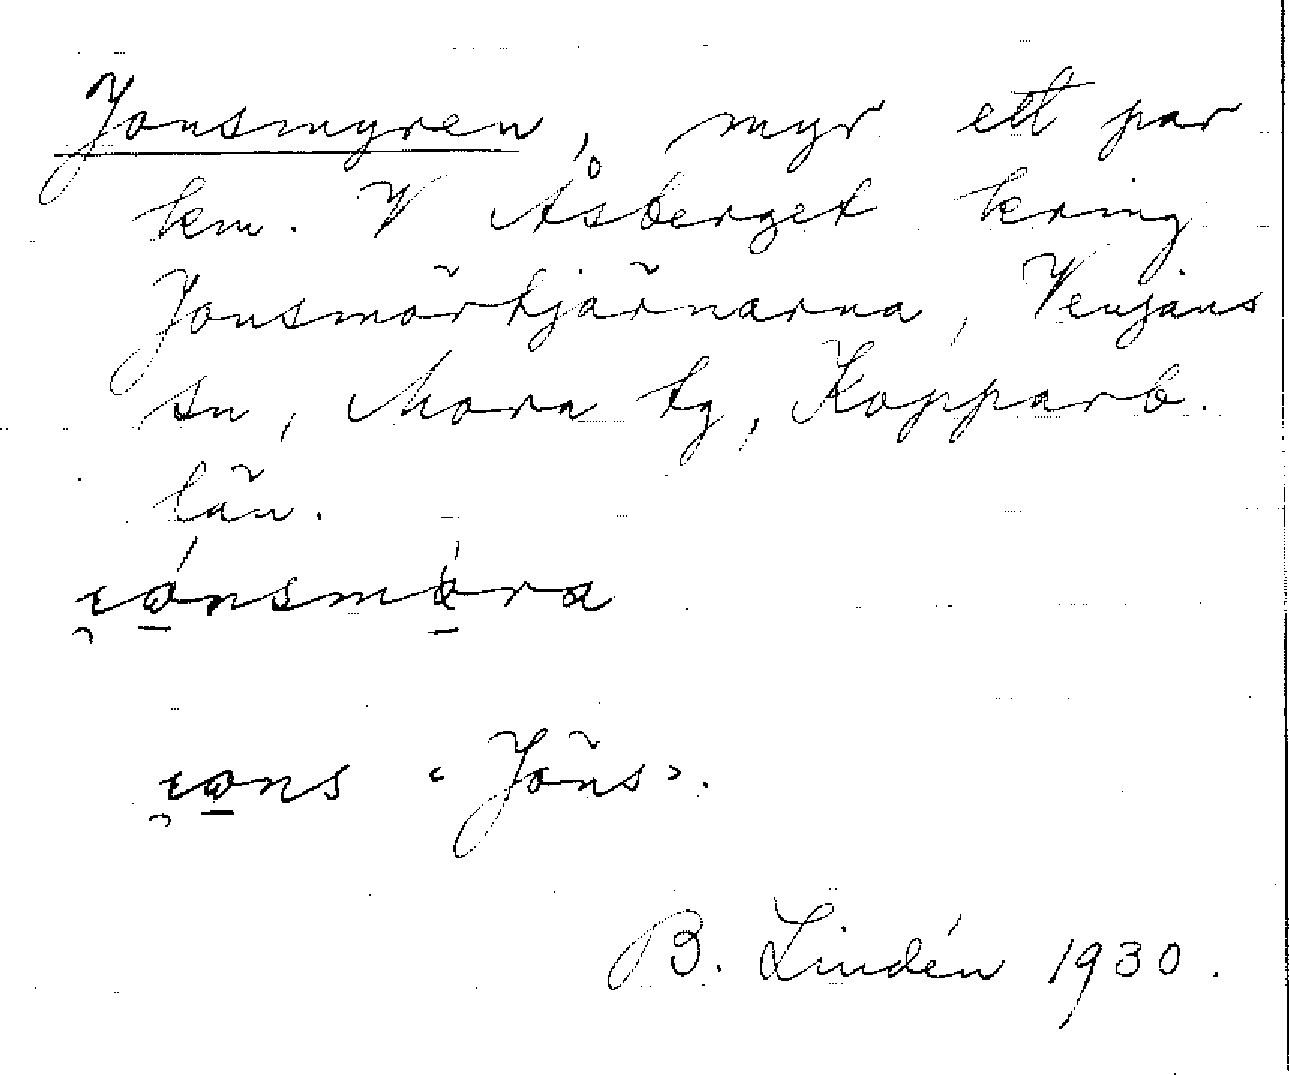 Jonsmyren, myr ett par
km. V Åsberget kring
Jonsmörtjärnarna, Venjans
sn, Mora tg, Kopparb.
län.
«Jöns».
B. Lindén 1930.